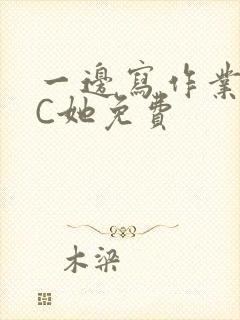 一邊寫作業
C她免費
木梁